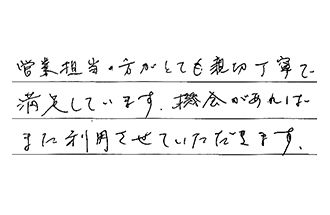 営業担当の方がとても親切丁寧で
満足しています。機会があれば
また利用させていただきます。